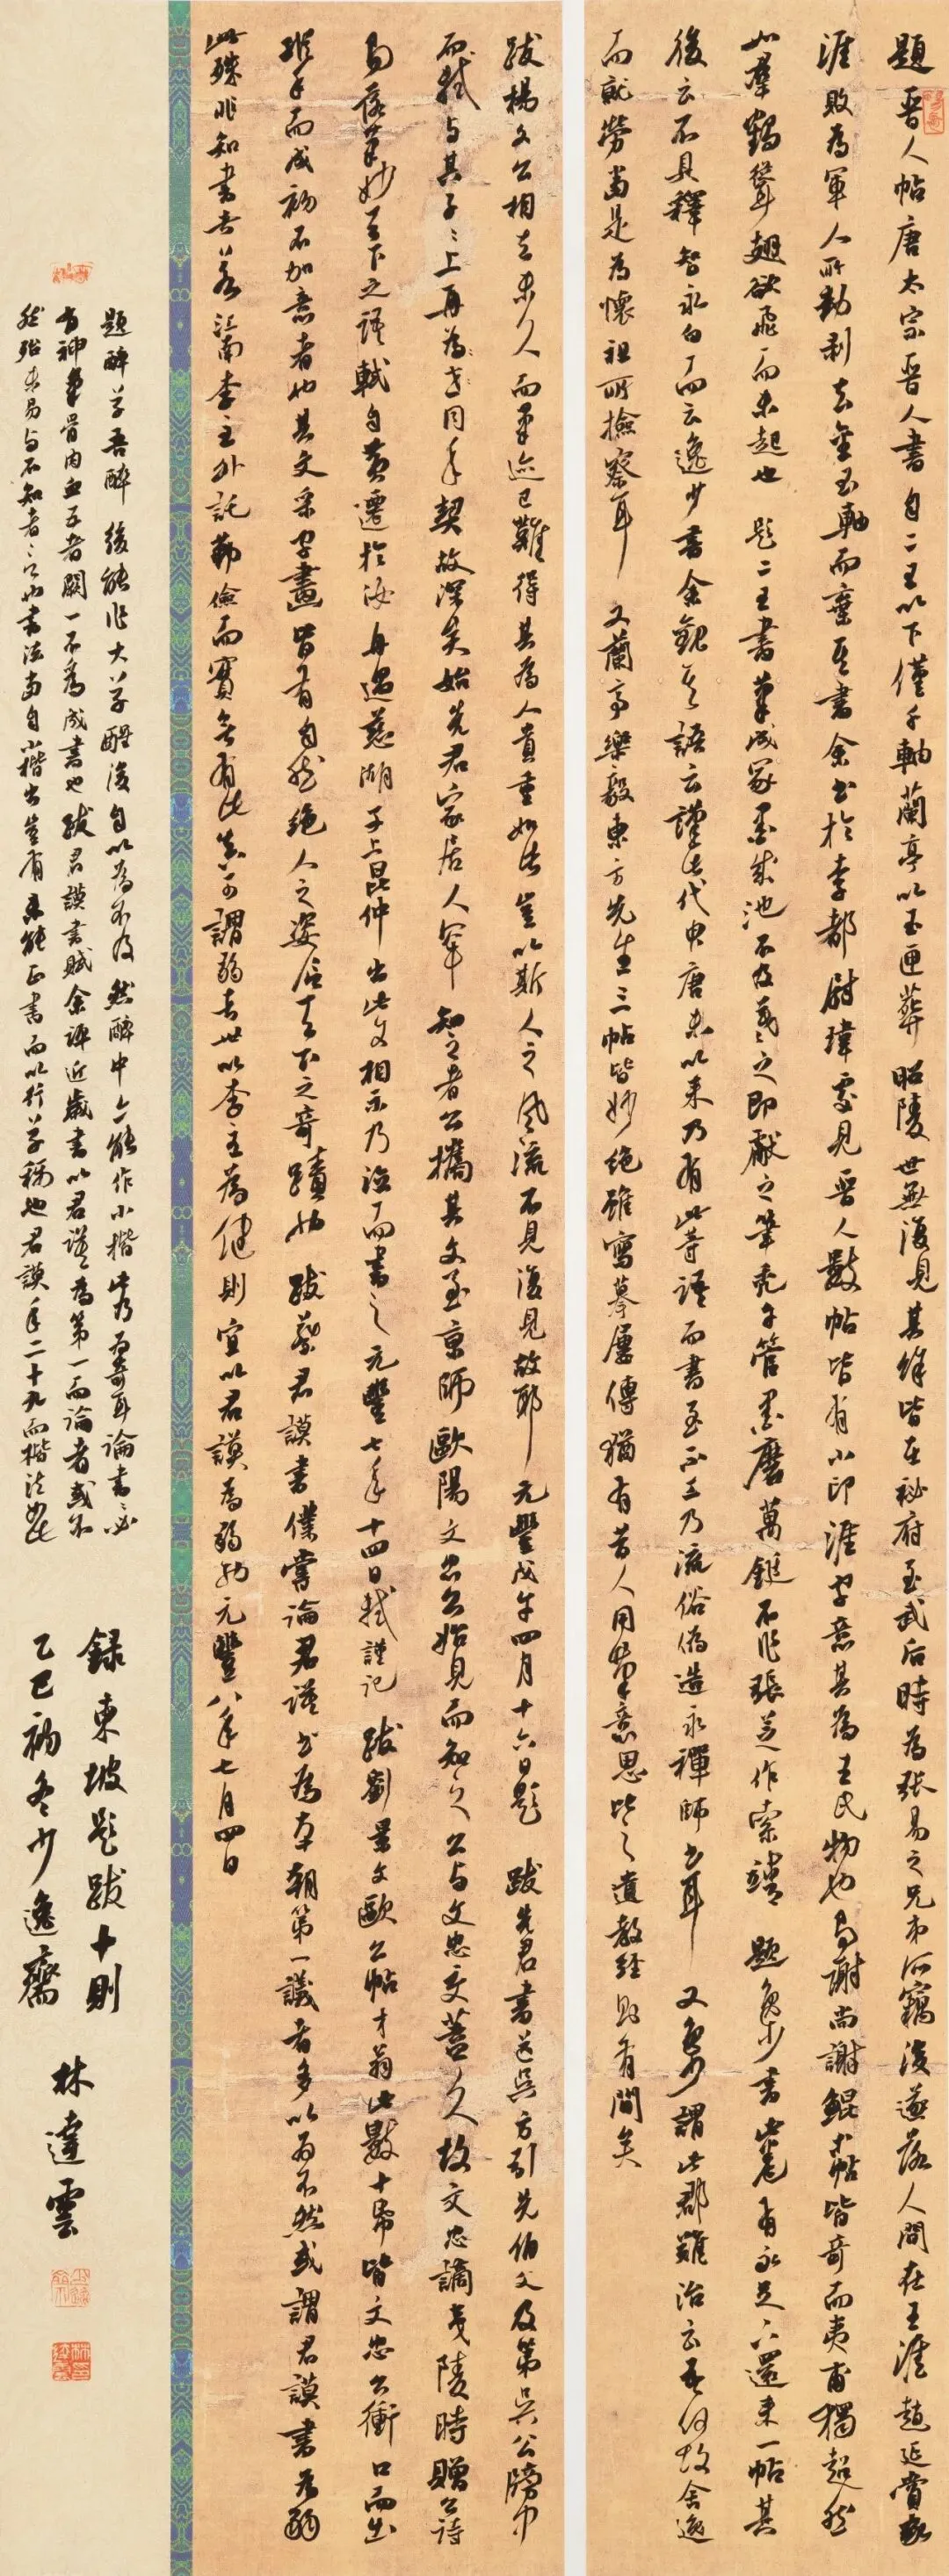 題晉人帖唐太宗晉人書自二王以下僅千軸蘭亭以玉匣葬昭陵世無復見其餘皆在秘府至武后時為張易之兄弟所竊後遂落人間在王涯張延賞家
涯敗為軍人所劫剥去金玉軸而棄其書余嘗於李都尉瑋處見晉人數帖皆有小印涯字意其為王氏物也有謝尚謝鯤帖皆奇而夷甫獨超然
如群鶴聳翅欲飛而未起也題二王書筆成冢墨成池不及羲之即獻之筆禿千管墨磨萬鋌不作張芝作索靖題逸少書此卷有永足下還來一帖其
後云不具釋智永白而云逸少書余觀其語云謹此代申唐末以來乃有此等語而書至不工乃流俗偽造永禪師書耳又逸少謂此郡難治云吾何故舍逸
而就勞當是為懷祖所檢察耳又蘭亭樂毅東方先生三帖皆妙絕雖寫摹屢傳猶有昔人用筆意思比之遺教經則有間矣
跋楊文公相去未久而筆迹已難得其為人貴重如此豈以斯人之風流不見復見故耶元豐戊午四月十六日題跋先君書送吳方引先伯父及第吳公牓中
而軾與其子子上再為同年契故深矣始先君家居人罕知之者公攜其文至京師歐陽文忠公始見而知之公與文忠交蓋久故文忠謫夷陵時贈公詩
有落筆妙天下之語軾自黃遷於汝再過慈湖子上昆仲出此文相示乃泣而書之元豐七年十四日軾謹記跋劉景文歐公帖才翁此數十帋皆文忠公衝口而出
縱手而成初不加意者也其文采字畫皆有自然絕人之姿信天下之奇蹟也跋蔡君謨書僕嘗論君謨書為本朝第一議者多以為不然或謂君謨書為弱
此殊非知書者若江南李主外託勁險而實無有此真可謂弱者世以李主為健則宜以君謨為弱也元豐八年七月四日
題醉草吾醉後能作大草醒後自以為不及然醉中亦能作小楷此乃為奇耳論書書必
有神氣骨肉血五者闕一不為成書也跋君謨書賦余評近歲書以君謨為第一而論者或不
然殆未易與不知者言也書法當自小楷出豈有未能正書而以行草稱也君謨年二十九而楷法如此
録東坡題跋十則
乙巳初冬少逸齋
林達雲